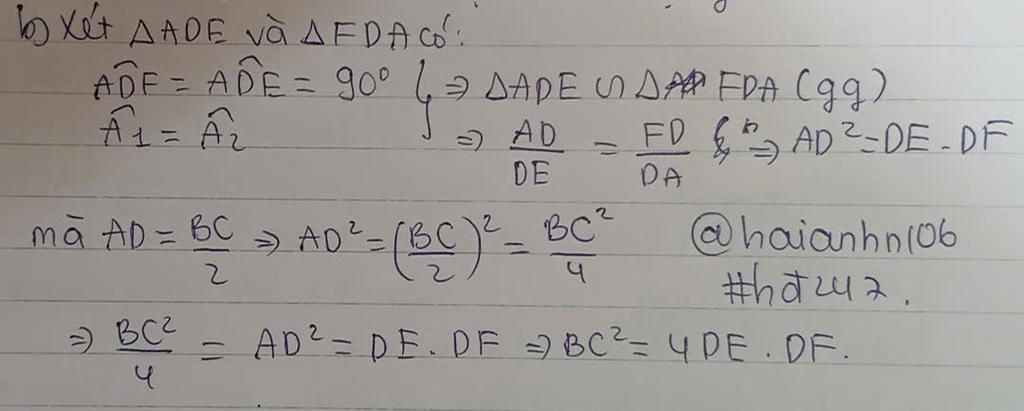 b) Xét ΔADE và ΔFDA có:
ADF = ADE = 90° } ⇒ ΔADE ∽ Δ FDA (gg)
Â1 = Â2 ⇒ AD/DE = FD/DA ⇒ AD² = DE . DF
mà AD = BC/2 ⇒ AD² = (BC/2)² = BC²/4 @haianhn106
#hđ247.
⇒ BC²/4 = AD² = DE . DF ⇒ BC² = 4 DE . DF.